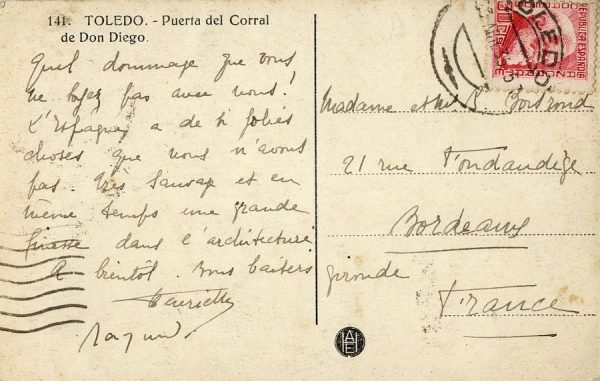 141. TOLEDO. - Puerta del Corral
de Don Diego.
Quel dommage que vous
ne soyez pas avec nous!
L'Espagne a de si jolies
choses que nous n'avons
pas. Très sauvage et en
même temps une grande
finesse dans l'architecture
A bientôt. Bons baisers
Henriette
Raymond
TOLEDO
REPUBLICA ESPAÑOLA
Madame et Mr R.
21 rue Fondaudège
Bordeaux
Gironde
France